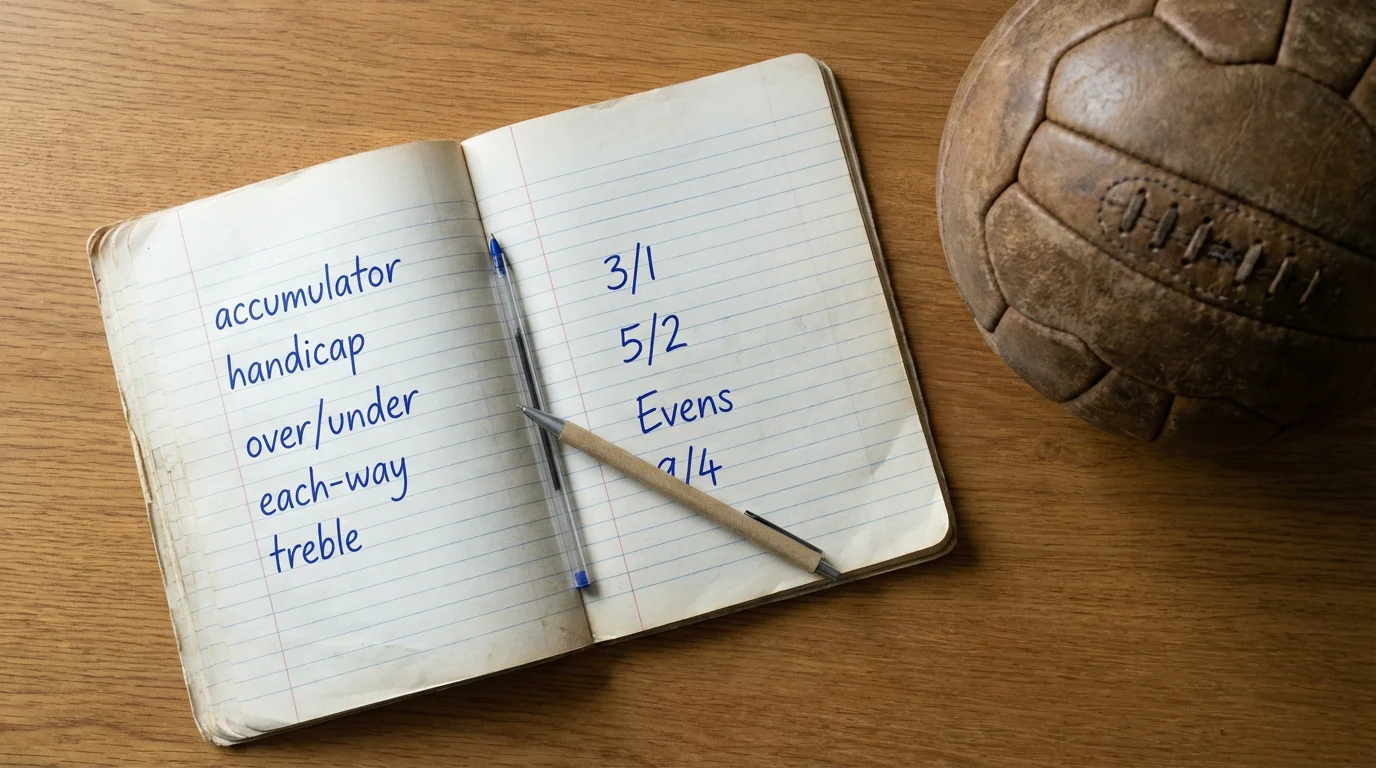 accumulator
handicap
over/under
each-way
treble
3/1
5/2
Evens
9/4